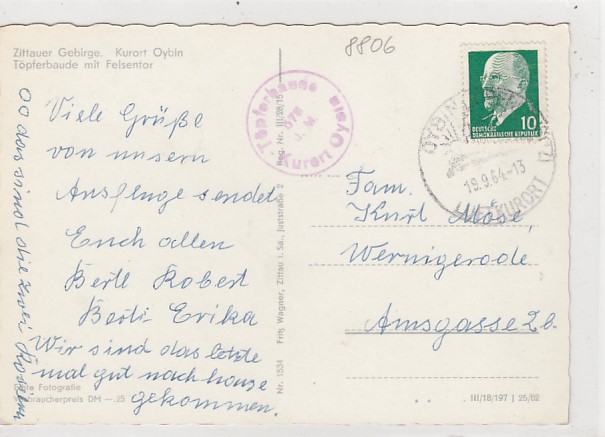 Zittauer Gebirge. Kurort Oybin
Töpferbaude mit Felsentor
8806
Viele Grüße
von unsern
Ausfluge sendet
Euch allen
Bertl Robert
Berti Erika
Wir sind das letzte
mal gut nach hause
gekommen.
oo das sind die zwei
Echte Fotografie
Verbraucherpreis DM —.25
Nr. 1534 Fritz Wagner, Zittau i. Sa., Juststraße 2 Reg. Nr. III/28/15
Töpferbaude
978
ü. M.
Kurort Oybin
DEUTSCHE
DEMOKRATISCHE REPUBLIK
10
OYBIN
19.9.64-13
KURORT
Fam.
Kurt Mose,
Wernigerode
Amsgasse 2b.
III/18/197 | 25/62